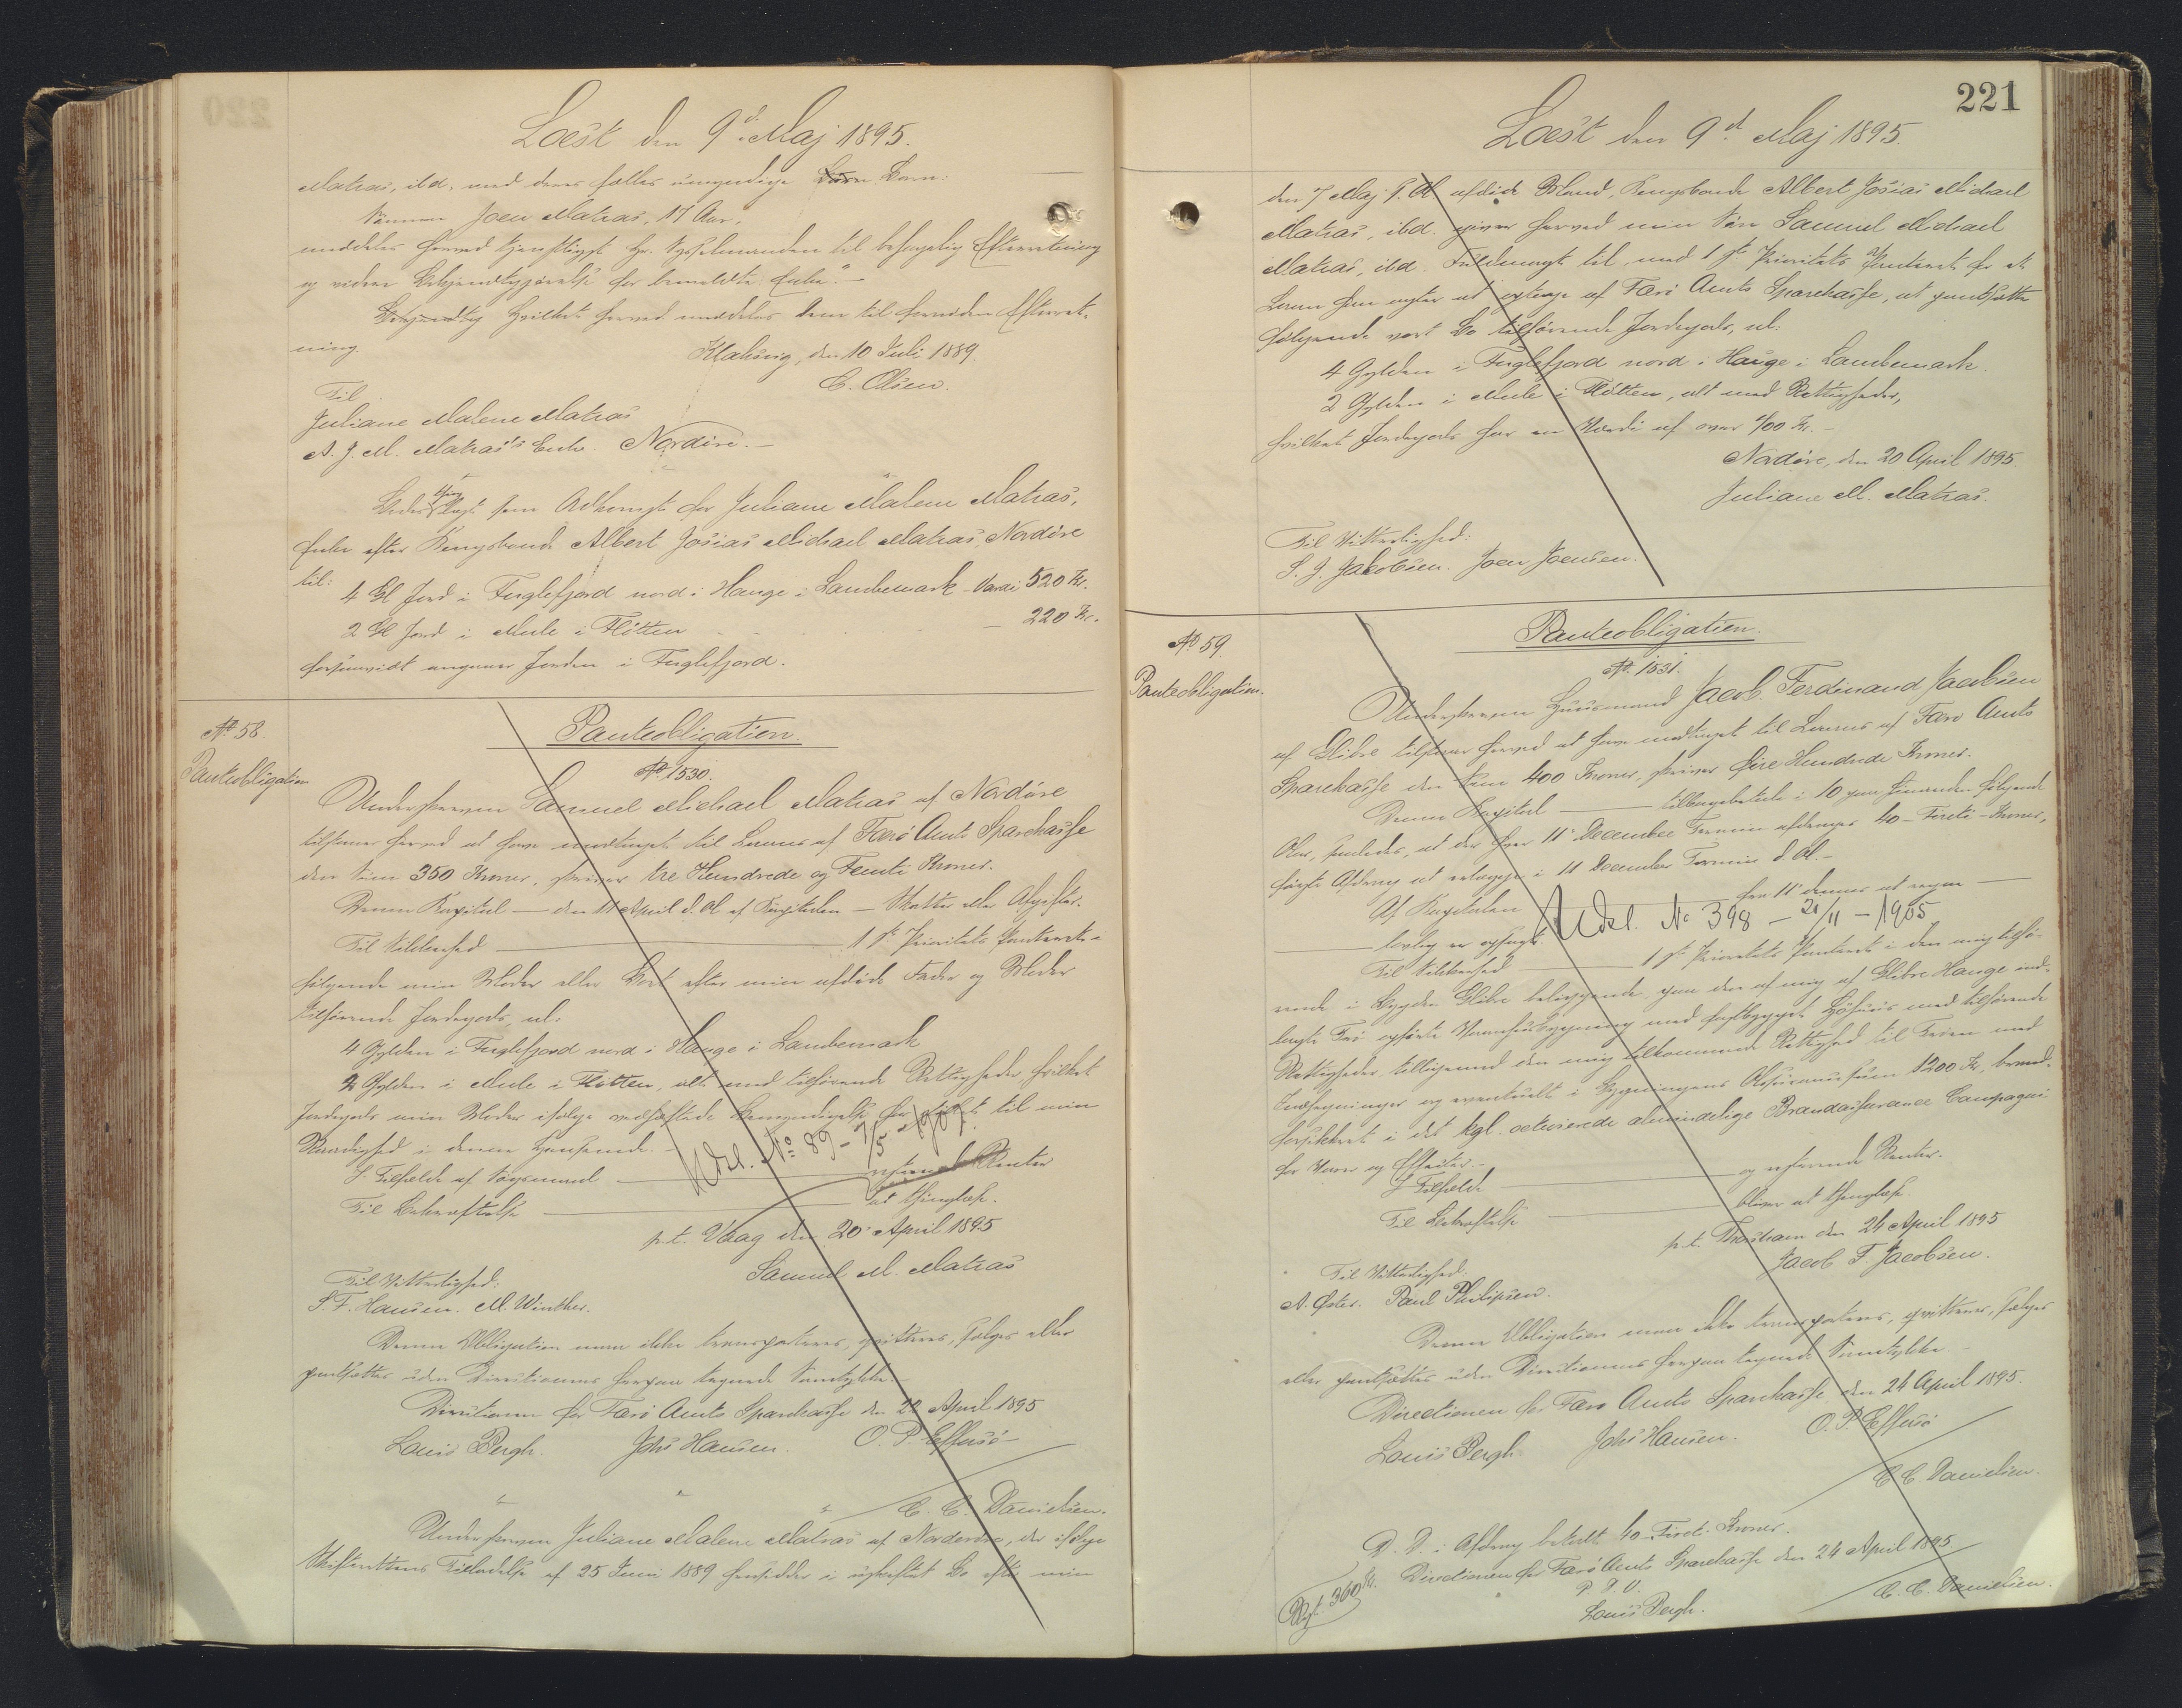 Læst den 9d Maj 1895.
Matras, ibd. med deres fælles umyndige Børn:
Sønnen Joen Matras, 17 Aar,
meddeles herved tjenstligst Hr. Sysselmanden til behagelig Efterretning
og videre Bekjendtgjørelse for bemeldte Enke."
Hvilket herved meddeles Dem til fornøden Efterret-
ning.
Klaksvig, den 10 Juli 1889.
C. Olsen.
Til
Juliane Malene Matras
A. J. M. Matras's Enke. Nordøre.
som Adkomst for Juliane Malene Matras,
Enke efter Kongsbonde Albert Josias Michael Matras, Nordøre
til:
4 Gl Jord i Fuglefjord nord i Hauge i Lambemark - Værdi 520 Kr.
2 Gl Jord i Mule i Fløtten - 220 Kr.
forsaavidt angaaer Jorden i Fuglefjord.
No 58.
Panteobligation
Panteobligation.
No. 1530.
Underskreven Samuel Michael Matras af Nordøre
tilstaaer herved at have modtaget til Laans af Færø Amts Sparekasse
den Sum 350 Kroner, skriver tre Hundrede og Femti Kroner.
Denne Kapital — den 11 April d. A. af Kapitalen — Skatter eller Afgifter.
Til Sikkerhed — 1ste Prioritets Panteret i
følgende min Moder eller Boet efter min afdøde Fader og Moder
tilhørende Jordegods, nl:
4 Gylden i Fuglefjord nord i Hauge i Lambemark
2 Gylden i Mule i Fløtten, alt med tilhørende Rettigheder, hvilket
Jordegods min Moder ifølge vedhæftede Bemyndigelse har stillet til min
Raadighed i denne Henseende.
Udsl. No 89 - 7/5 - 1907.
I Tilfælde af Søgsmaal — Renter
Til Bekræftelse — at thinglæse.
p. t. Vaag den 20 April 1895
Samuel M. Matras
Til Vitterlighed:
S. F. Hansen. M. Winther.
Denne Obligation maa ikke transporteres, qvitteres, sælges eller
pantsættes uden Directionens herpaa tegnede Samtykke.
Directionen for Færø Amts Sparekasse den 24 April 1895
Louis Bergh. Johs Hansen. O. P. Effersøe
C. C. Danielsen.
Underskreven Juliane Malene Matras af Norderøre, der ifølge
Skifterettens Tilladelse af 25 Juni 1889 hensidder i uskiftet Bo efter min
221
Læst den 9d Maj 1895.
den 7 Maj f. A. afdøde Mand, Kongsbonde Albert Josias Michael
Matras, ibd. giver herved min Søn Samuel Michael
Matras, ibd. Fuldmagt til, med 1ste Prioritets Panteret for et
Laan han agter at optage af Færø Amts Sparekasse, at pantsætte
følgende vort Bo tilhørende Jordegods, nl:
4 Gylden i Fuglefjord nord i Hauge i Lambemark.
2 Gylden i Mule i Fløtten, alt med Rettigheder,
hvilket Jordegods har en Værdi af over 400 Kr. -
Nordøre, den 20 April 1895.
Juliane M. Matras.
Til Vitterlighed:
S. J. Jakobsen. Joen Joensen.
No 59.
Panteobligation.
Panteobligation.
No. 1531.
Underskreven Huusmand Jacob Ferdinand Jacobsen
af Glibre tilstaaer herved at have modtaget til Laans af Færø Amts
Sparekasse den Sum 400 Kroner, skriver fire Hundrede Kroner.
Denne Kapital — tilbagebetale i 10 paa hinanden følgende
Aar, saaledes, at der hver 11 December Termin afdrages 40 - Fireti - Kroner,
første Afdrag at erlægge i 11 December Termin d. A. -
Af Kapitalen — fra 11' dennes at regne —
— lovlig er opsagt.
Udsl. No 398 - 21/11 - 1905
Til Sikkerhed — 1ste Prioritets Panteret i den mig tilhø-
rende i Bygden Glibre beliggende, paa den af mig af Glibre Hauge ind-
lagte Trø opførte Vaaningsbygning med fastbygget Hjøhuus med tilhørende
Rettigheder tilligemed den mig tilkommende Rettighed til Trøen med
Indhegninger og eventuelt i Bygningens Assurancesum 1200 Kr, brand-
forsikkret i det kgl. octroierede almindelige Brandassurance Compagni
for Varer og Effecter. -
I Tilfælde — og resterende Renter.
Til Bekræftelse — bliver at thinglæse.
p. t. Thorshavn den 24 April 1895
Jacob F. Jacobsen.
Til Vitterlighed:
A. Øster. Paul Philipsen.
Denne Obligation maa ikke transporteres, qvitteres, sælges
eller pantsættes uden Directionens herpaa tegnede Samtykke
Directionen for Færø Amts Sparekasse, den 24 April 1895.
Louis Bergh. Johs Hansen. O. P. Effersøe
C. C. Danielsen.
D. D. i Afdrag betalt 40 - Fireti - Kroner.
Directionen for Færø Amts Sparekasse den 24 April 1895.
P. D. V.
Louis Bergh.
C. C. Danielsen.
Rest 360 Kr.